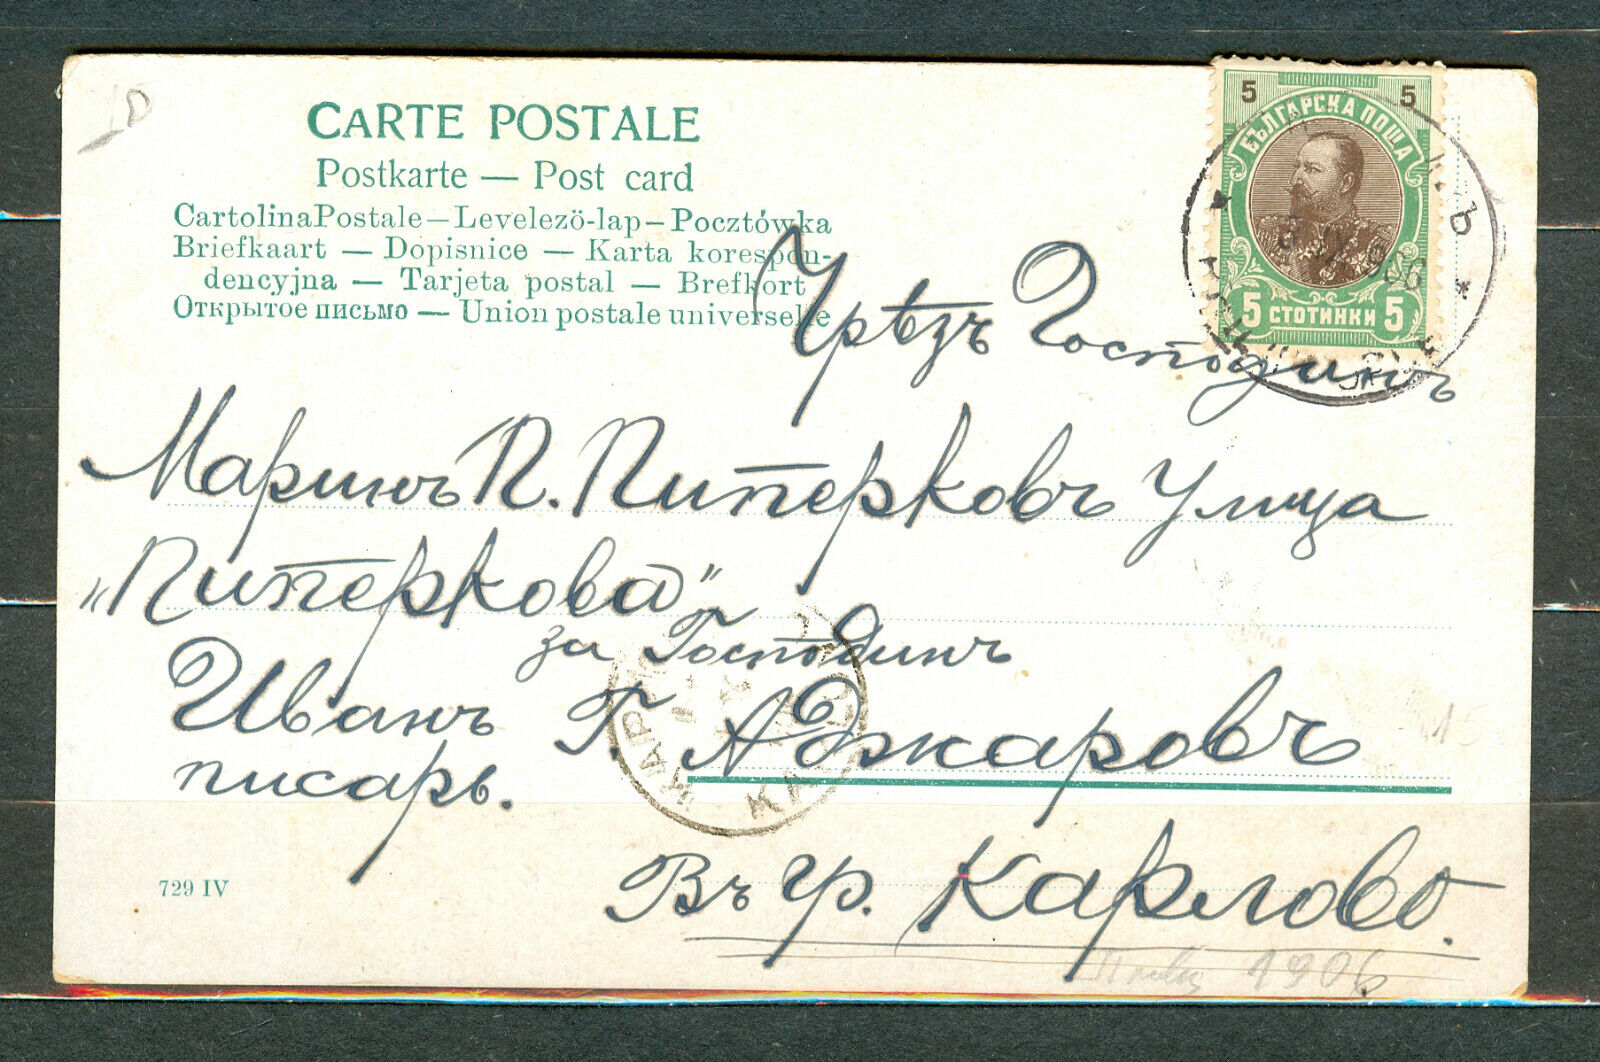 CARTE POSTALE
Postkarte — Post card
Cartolina Postale — Levelezö-lap — Pocztówka
Briefkaart — Dopisnice — Karta korespon-
dencyjna — Tarjeta postal — Brefkort
Открытое письмо — Union postale universelle
5 5
БЪЛГАРСКА ПОЩА
5 СТОТИНКИ 5
Чрѣзъ Господинъ
Маринъ П. Питерковъ Улица
„Питеркова"
за Господинъ
Иванъ Г. Аджаровъ
писарь.
Въ гр. Карлово.
729 IV
1906
15